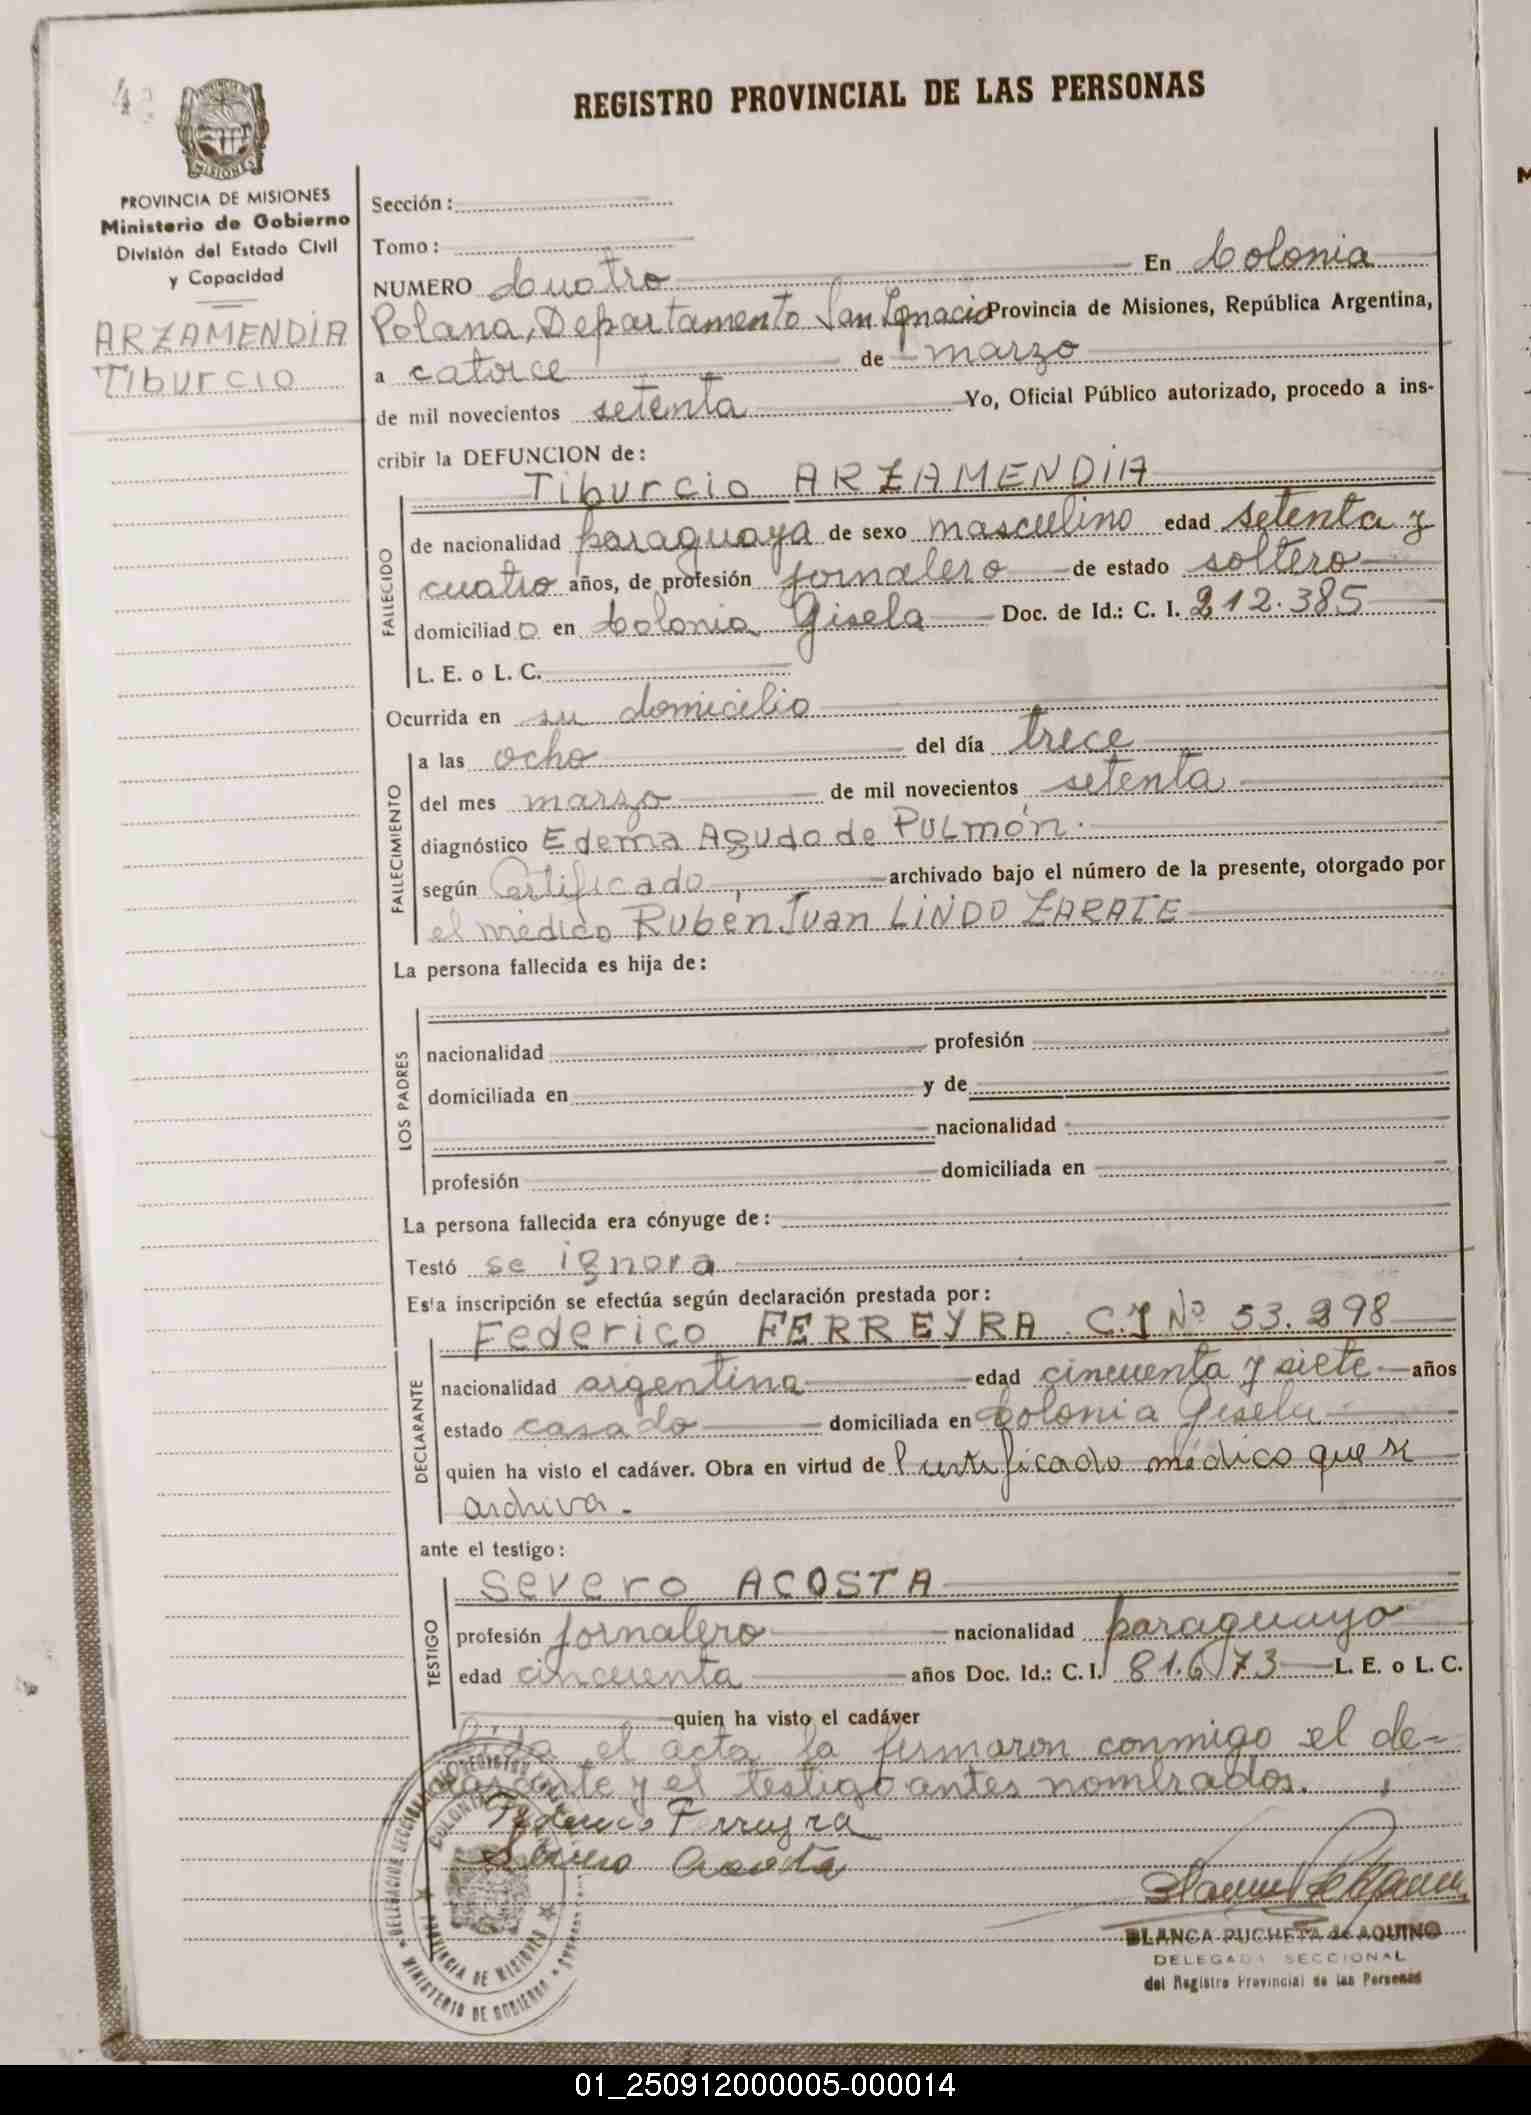 REGISTRO PROVINCIAL DE LAS PERSONAS
MISIONES
PROVINCIA DE MISIONES
Ministerio de Gobierno
División del Estado Civil
y Capacidad
ARZAMENDIA
Tiburcio
Sección:
Tomo:
NUMERO Cuatro En Colonia
Polana, Departamento San Ignacio Provincia de Misiones, República Argentina,
a catorce de marzo
de mil novecientos setenta Yo, Oficial Público autorizado, procedo a ins-
cribir la DEFUNCION de:
Tiburcio ARZAMENDIA
FALLECIDO
de nacionalidad paraguaya de sexo masculino edad setenta y
cuatro años, de profesión jornalero de estado soltero
domiciliado en Colonia Gisela Doc. de Id.: C. I. 212.385
L. E. o L. C.
Ocurrida en su domicilio
FALLECIMIENTO
a las ocho del día trece
del mes marzo de mil novecientos setenta
diagnóstico Edema Agudo de Pulmón.
según Certificado archivado bajo el número de la presente, otorgado por
el médico Rubén Juan LINDO ZARATE
La persona fallecida es hija de:
LOS PADRES
nacionalidad profesión
domiciliada en y de
nacionalidad
profesión domiciliada en
La persona fallecida era cónyuge de:
Testó se ignora
Esta inscripción se efectúa según declaración prestada por:
Federico FERREYRA C.I Nº 53.298
DECLARANTE
nacionalidad argentina edad cincuenta y siete años
estado casado domiciliada en Colonia Gisela
quien ha visto el cadáver. Obra en virtud de Certificado médico que se
archiva.-
ante el testigo:
Severo ACOSTA
TESTIGO
profesión jornalero nacionalidad paraguayo
edad cincuenta años Doc. Id.: C. I. 81.673 L. E. o L. C.
quien ha visto el cadáver
Leída el acta la firmaron conmigo el de-
clarante y el testigo antes nombrados.
Federico Ferreyra
Severo Acosta
BLANCA PUCHETA de AQUINO
DELEGADA SECCIONAL
del Registro Provincial de las Personas
DELEGACION SECCIONAL
PROVINCIA DE MISIONES
MINISTERIO DE GOBIERNO
01_250912000005-000014